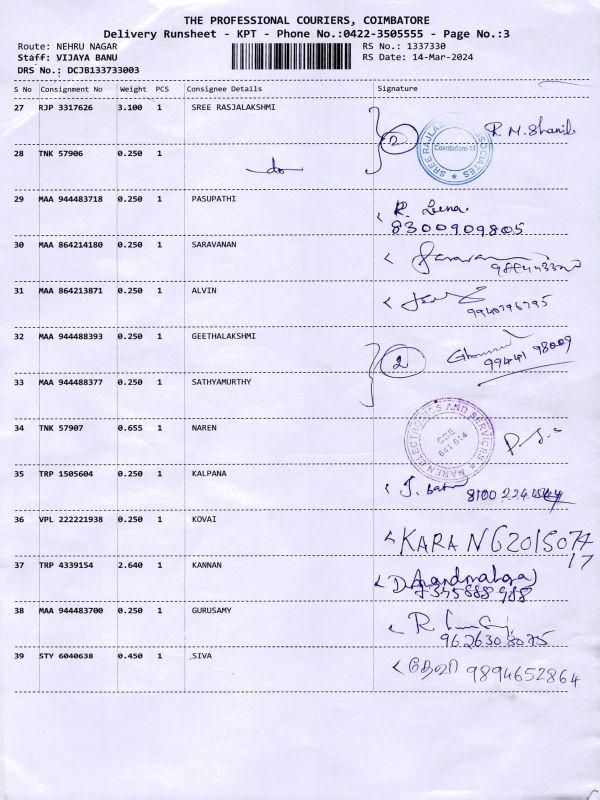 THE PROFESSIONAL COURIERS, COIMBATORE
Delivery Runsheet - KPT - Phone No.:0422-3505555 - Page No.:3
Route: NEHRU NAGAR RS No.: 1337330
Staff: VIJAYA BANU RS Date: 14-Mar-2024
DRS No.: DCJB133733003
S No Consignment No Weight PCS Consignee Details Signature
27 RJP 3317626 3.100 1 SREE RASJALAKSHMI 2 R.M. Shanil
Coimbatore-14
28 TNK 57906 0.250 1 do
29 MAA 944483718 0.250 1 PASUPATHI R. Leena
8300909805
30 MAA 864214180 0.250 1 SARAVANAN
31 MAA 864213871 0.250 1 ALVIN
9940796795
32 MAA 944488393 0.250 1 GEETHALAKSHMI 2 99441 98009
33 MAA 944488377 0.250 1 SATHYAMURTHY
34 TNK 57907 0.655 1 NAREN
NAREN ELECTRONICS AND SERVICES
CBE
641 014
35 TRP 1505604 0.250 1 KALPANA
36 VPL 222221938 0.250 1 KOVAI KARAN 62015074
17
37 TRP 4339154 2.640 1 KANNAN
38 MAA 944483700 0.250 1 GURUSAMY
9626308075
39 STY 6040638 0.450 1 SIVA தேவி 9894652864